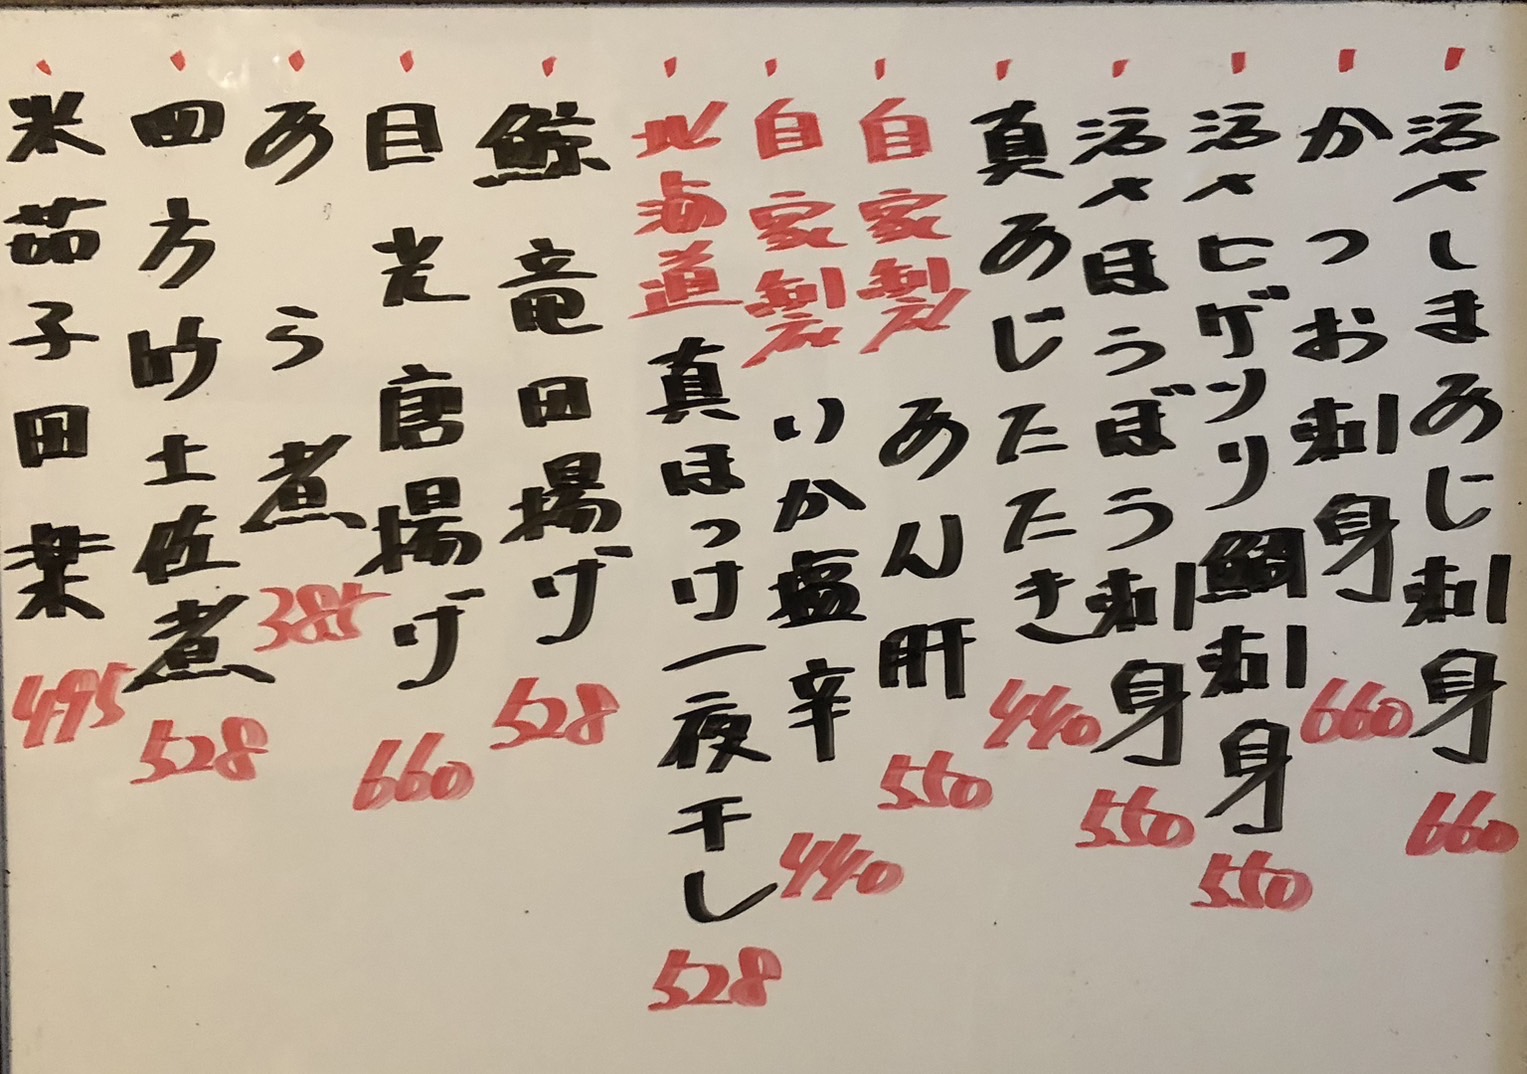 活〆しまあじ刺身 660
かつお刺身 660
活〆ヒゲソリ鯛刺身 550
活〆ほうぼう刺身 550
真あじたたき 440
自家製 あん肝 550
自家製 いか塩辛 440
北海道 真ほっけ一夜干し 528
鯨竜田揚げ 528
目光唐揚げ 660
あら煮 385
四方竹土佐煮 528
米茄子田楽 495